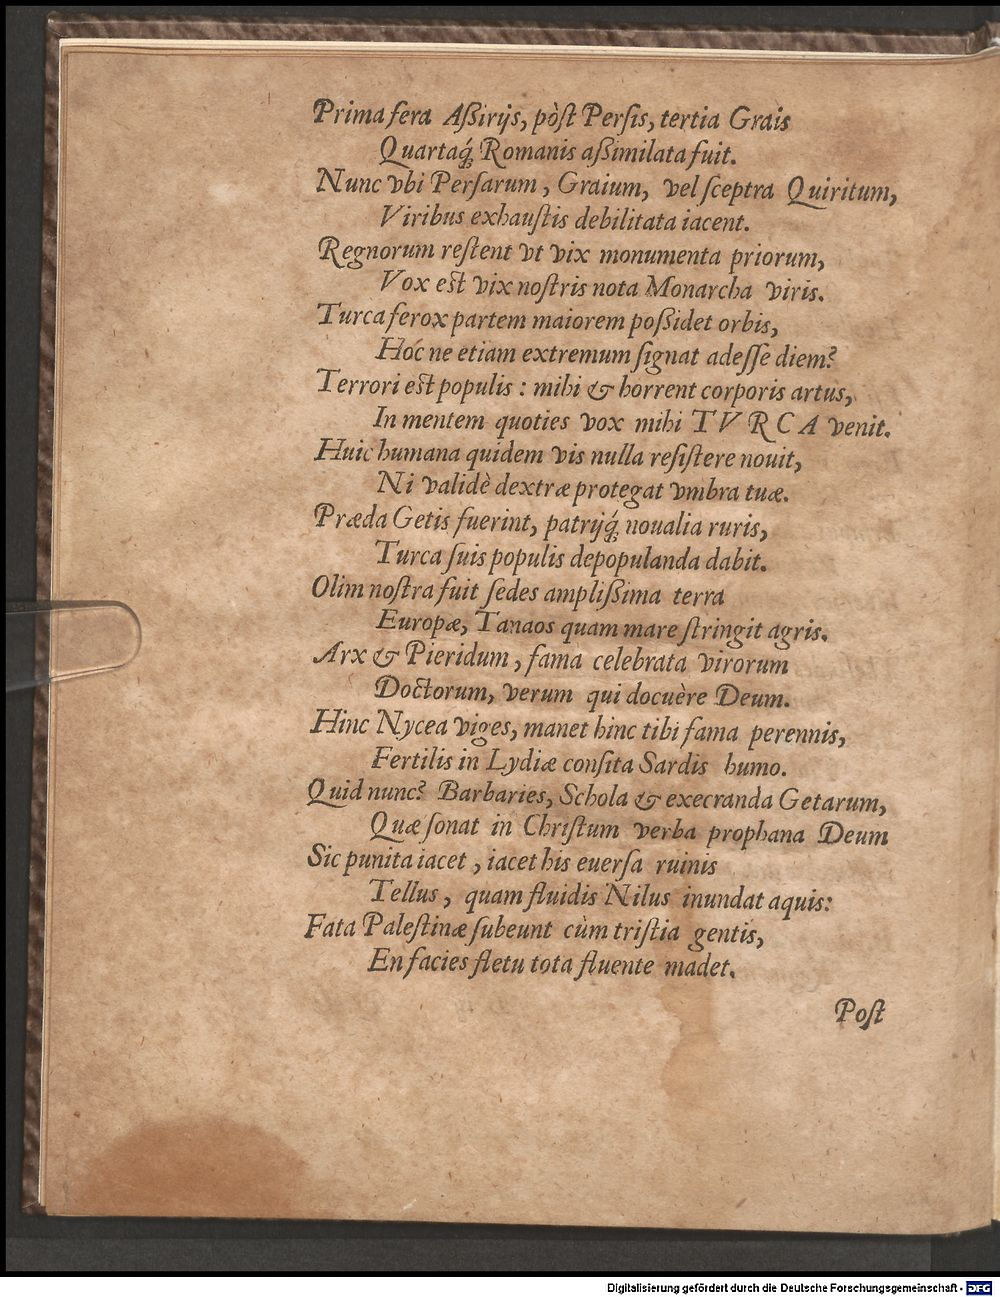 Prima fera Aßirijs, pòſt Perſis, tertia Grais
Quartaq́; Romanis aßimilata fuit.
Nunc vbi Perſarum, Graium, vel ſceptra Quiritum,
Viribus exhauſtis debilitata iacent.
Regnorum reſtent vt vix monumenta priorum,
Vox eſt vix noſtris nota Monarcha viris.
Turca ferox partem maiorem poßidet orbis,
Hoć ne etiam extremum ſignat adeſſe diem?
Terrori eſt populis: mihi & horrent corporis artus,
In mentem quoties vox mihi TVRCA venit.
Huic humana quidem vis nulla reſiſtere nouit,
Ni validè dextræ protegat vmbra tuæ.
Præda Getis fuerint, patrijq́; noualia ruris,
Turca ſuis populis depopulanda dabit.
Olim noſtra fuit ſedes amplißima terra
Europæ, Tanaos quam mare ſtringit agris.
Arx & Pieridum, fama celebrata virorum
Doctorum, verum qui docuère Deum.
Hinc Nycea viges, manet hinc tibi fama perennis,
Fertilis in Lydiæ conſita Sardis humo.
Quid nunc? Barbaries, Schola & execranda Getarum,
Quæ ſonat in Chriſtum verba prophana Deum
Sic punita iacet, iacet his euerſa ruinis
Tellus, quam fluidis Nilus inundat aquis:
Fata Paleſtinæ ſubeunt cùm triſtia gentis,
En facies fletu tota fluente madet.
Poſt
Digitalisierung gefördert durch die Deutsche Forschungsgemeinschaft - DFG